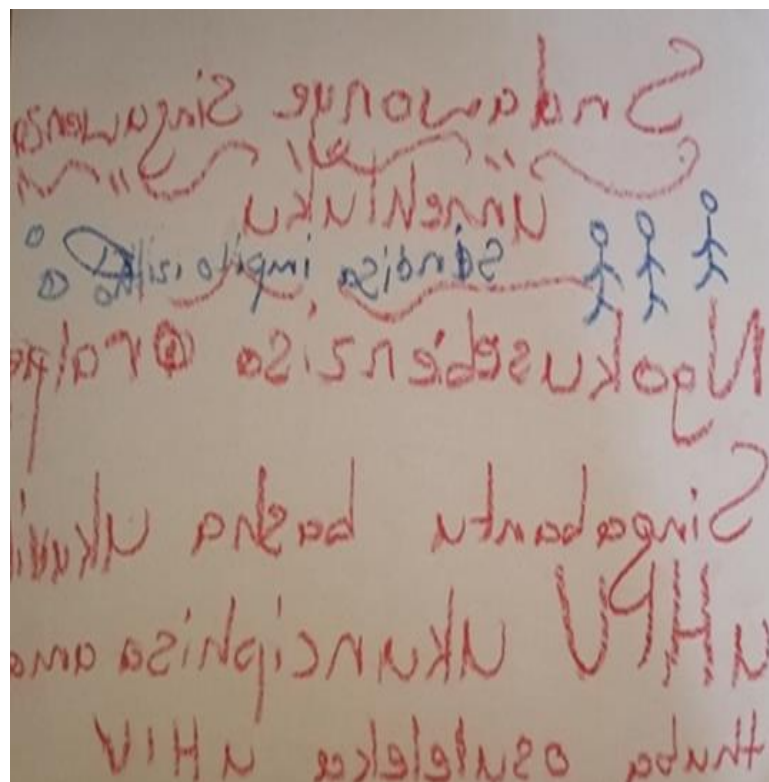 Sndawonye Singawensa
Umehluku
Sandisa impilo
Ngokusebenzisa Oralpe
Singabantu basha
uHPV ukunciphisa ama
thuba osuleleka uHIV